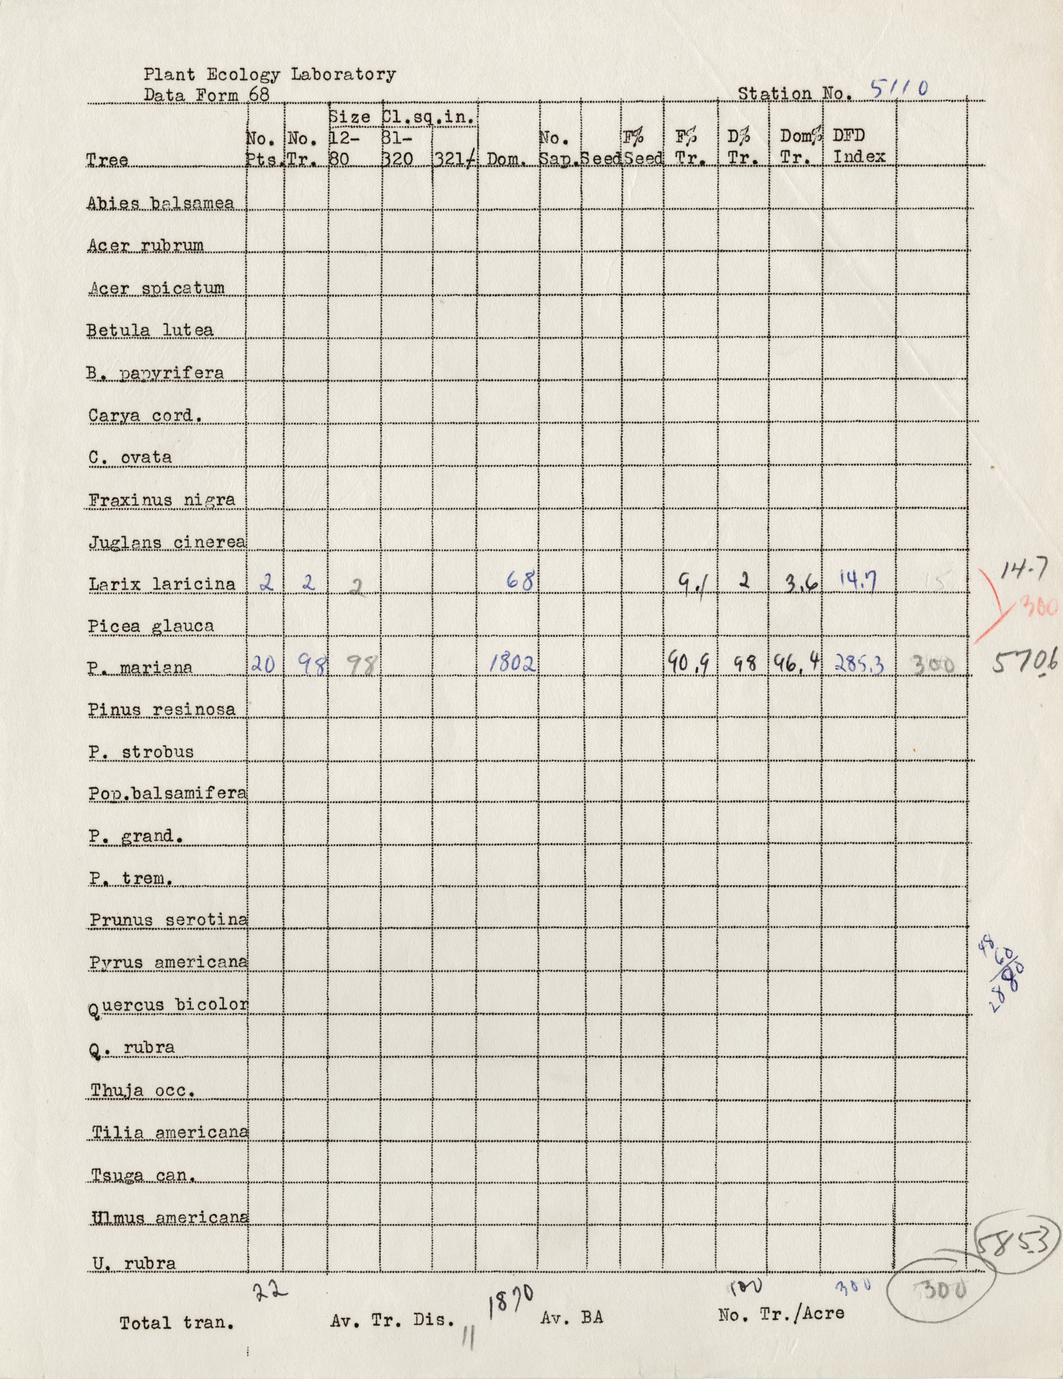 Plant Ecology Laboratory
Data Form 68
Station No. 5110
Size Cl.sq.in.
No. No. 12- 81- No. F% F% D% Dom% DFD
Tree Pts. Tr. 80 320 321/ Dom. Sap. Seed Seed Tr. Tr. Tr. Index
Abies balsamea
Acer rubrum
Acer spicatum
Betula lutea
B. papyrifera
Carya cord.
C. ovata
Fraxinus nigra
Juglans cinerea
Larix laricina 2 2 2 68 9.1 2 3.6 14.7 15 14.7
300
Picea glauca
P. mariana 20 98 98 1802 90.9 98 96.4 285.3 300 570.6
Pinus resinosa
P. strobus
Pop.balsamifera
P. grand.
P. trem.
Prunus serotina
Pyrus americana
48
60
2880
Quercus bicolor
Q. rubra
Thuja occ.
Tilia americana
Tsuga can.
Ulmus americana
585.3
U. rubra
22 1870 100 300 300
Total tran. Av. Tr. Dis. 11 Av. BA No. Tr./Acre